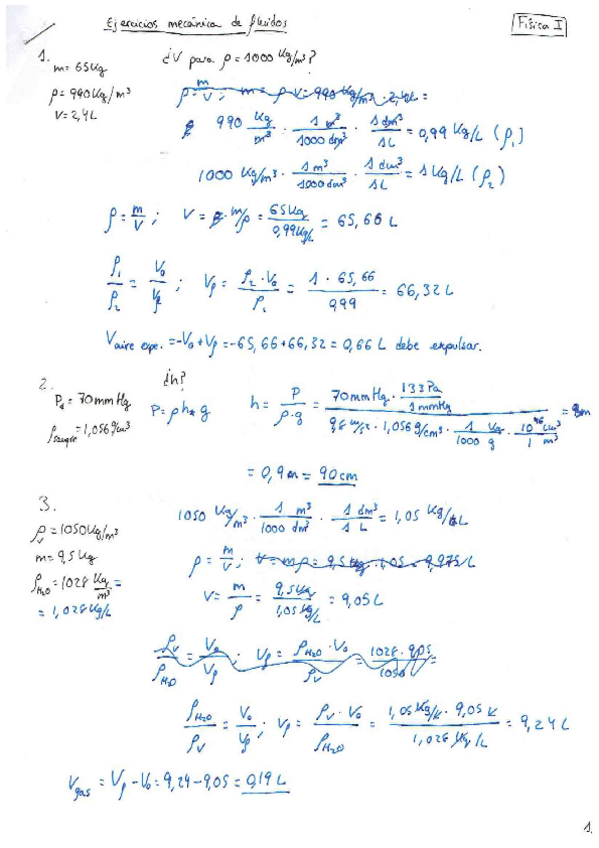 Ejercicios mecánica de fluidos
Física I
1.
m = 65 Kg
ρ = 990 Kg/m³
V = 2,4 L
¿V para ρ = 1000 Kg/m³?
ρ = m/V ; m = ρ·V = 990 Kg/m³ · 2,4L =
990 Kg/m³ · 1 m³/1000 dm³ · 1 dm³/1L = 0,99 Kg/L (ρ₁)
1000 Kg/m³ · 1 m³/1000 dm³ · 1 dm³/1L = 1 Kg/L (ρ₂)
ρ = m/V ; V = m/ρ = 65 Kg/0,99 Kg/L = 65,66 L
ρ₁/ρ₂ = V₀/Vρ ; Vρ = ρ₂·V₀/ρ₁ = 1 · 65,66/0,99 = 66,32 L
Vaire expe. = -V₀ + Vρ = -65,66 + 66,32 = 0,66 L debe expulsar.
2.
P₁ = 70 mmHg
ρsangre = 1,056 g/cm³
¿h?
P = ρ h · g
h = P/ρ·g = 70 mmHg · 133 Pa/1 mmHg / 9,8 m/s² · 1,056 g/cm³ · 1 Kg/1000 g · 10⁶ cm³/1 m³ =
= 0,9 m = 90 cm
3.
ρv = 1050 Kg/m³
m = 9,5 Kg
ρH₂O = 1028 Kg/m³ =
= 1,028 Kg/L
1050 Kg/m³ · 1 m³/1000 dm³ · 1 dm³/1 L = 1,05 Kg/L
ρ = m/V ; V = mρ = 9,5 Kg · 1,05 = 9,975 L
V = m/ρ = 9,5 Kg/1,05 Kg/L = 9,05 L
ρv/ρH₂O = V₀/Vρ ; Vρ = ρH₂O · V₀/ρv = 1028 · 9,05/1050 =
ρH₂O/ρv = V₀/Vρ ; Vρ = ρv · V₀/ρH₂O = 1,05 Kg/L · 9,05 L/1,028 Kg/L = 9,24 L
Vgas = Vρ - V₀ = 9,24 - 9,05 = 0,19 L
1.